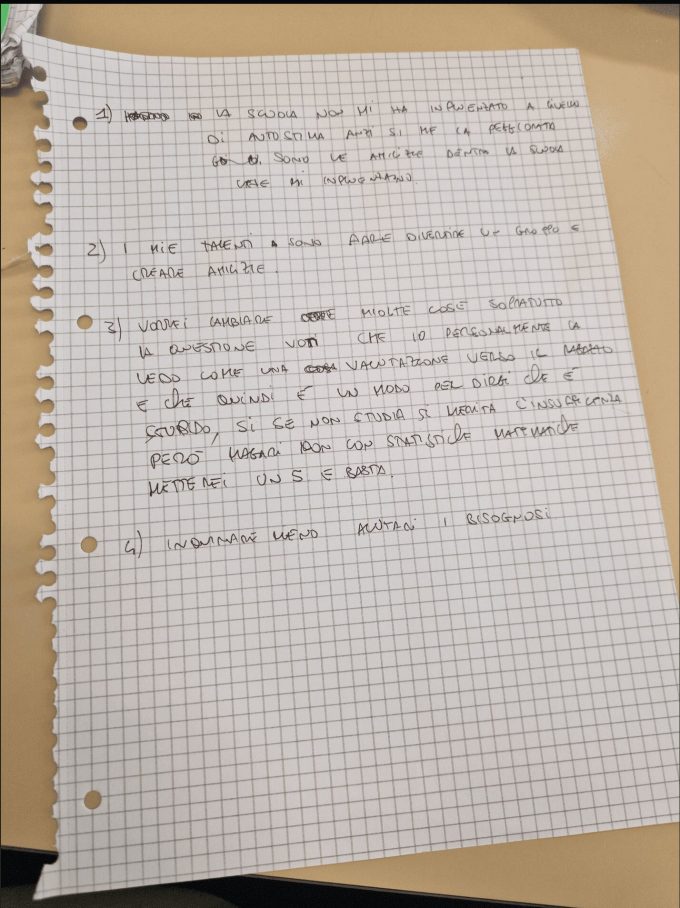 1) LA SCUOLA NON MI HA INFLUENZATO A QUELLO
DI AUTOSTIMA ANZI SI ME LA
SONO LE AMICIZIE DENTRO LA SCUOLA
CHE MI INFLUENZANO.
2) I MIE TALENTI SONO FARE DIVERTIRE UN GRUPPO E
CREARE AMICIZIE.
3) VORREI CAMBIARE MOLTE COSE SOPRATUTTO
LA QUESTIONE VOTI CHE IO PERSONALMENTE LA
VEDO COME UNA VALUTAZIONE VERSO IL
E CHE QUINDI È UN MODO PER DIRGI CHE È
STUPIDO, SI SE NON STUDIA SI MERITA L'INSUFICENZA
PERÒ MAGARI NON CON STATISTICHE MATEMATICHE
METTEREI UN 5 E BASTA.
4) INQUINARE MENO AIUTARE I BISOGNOSI